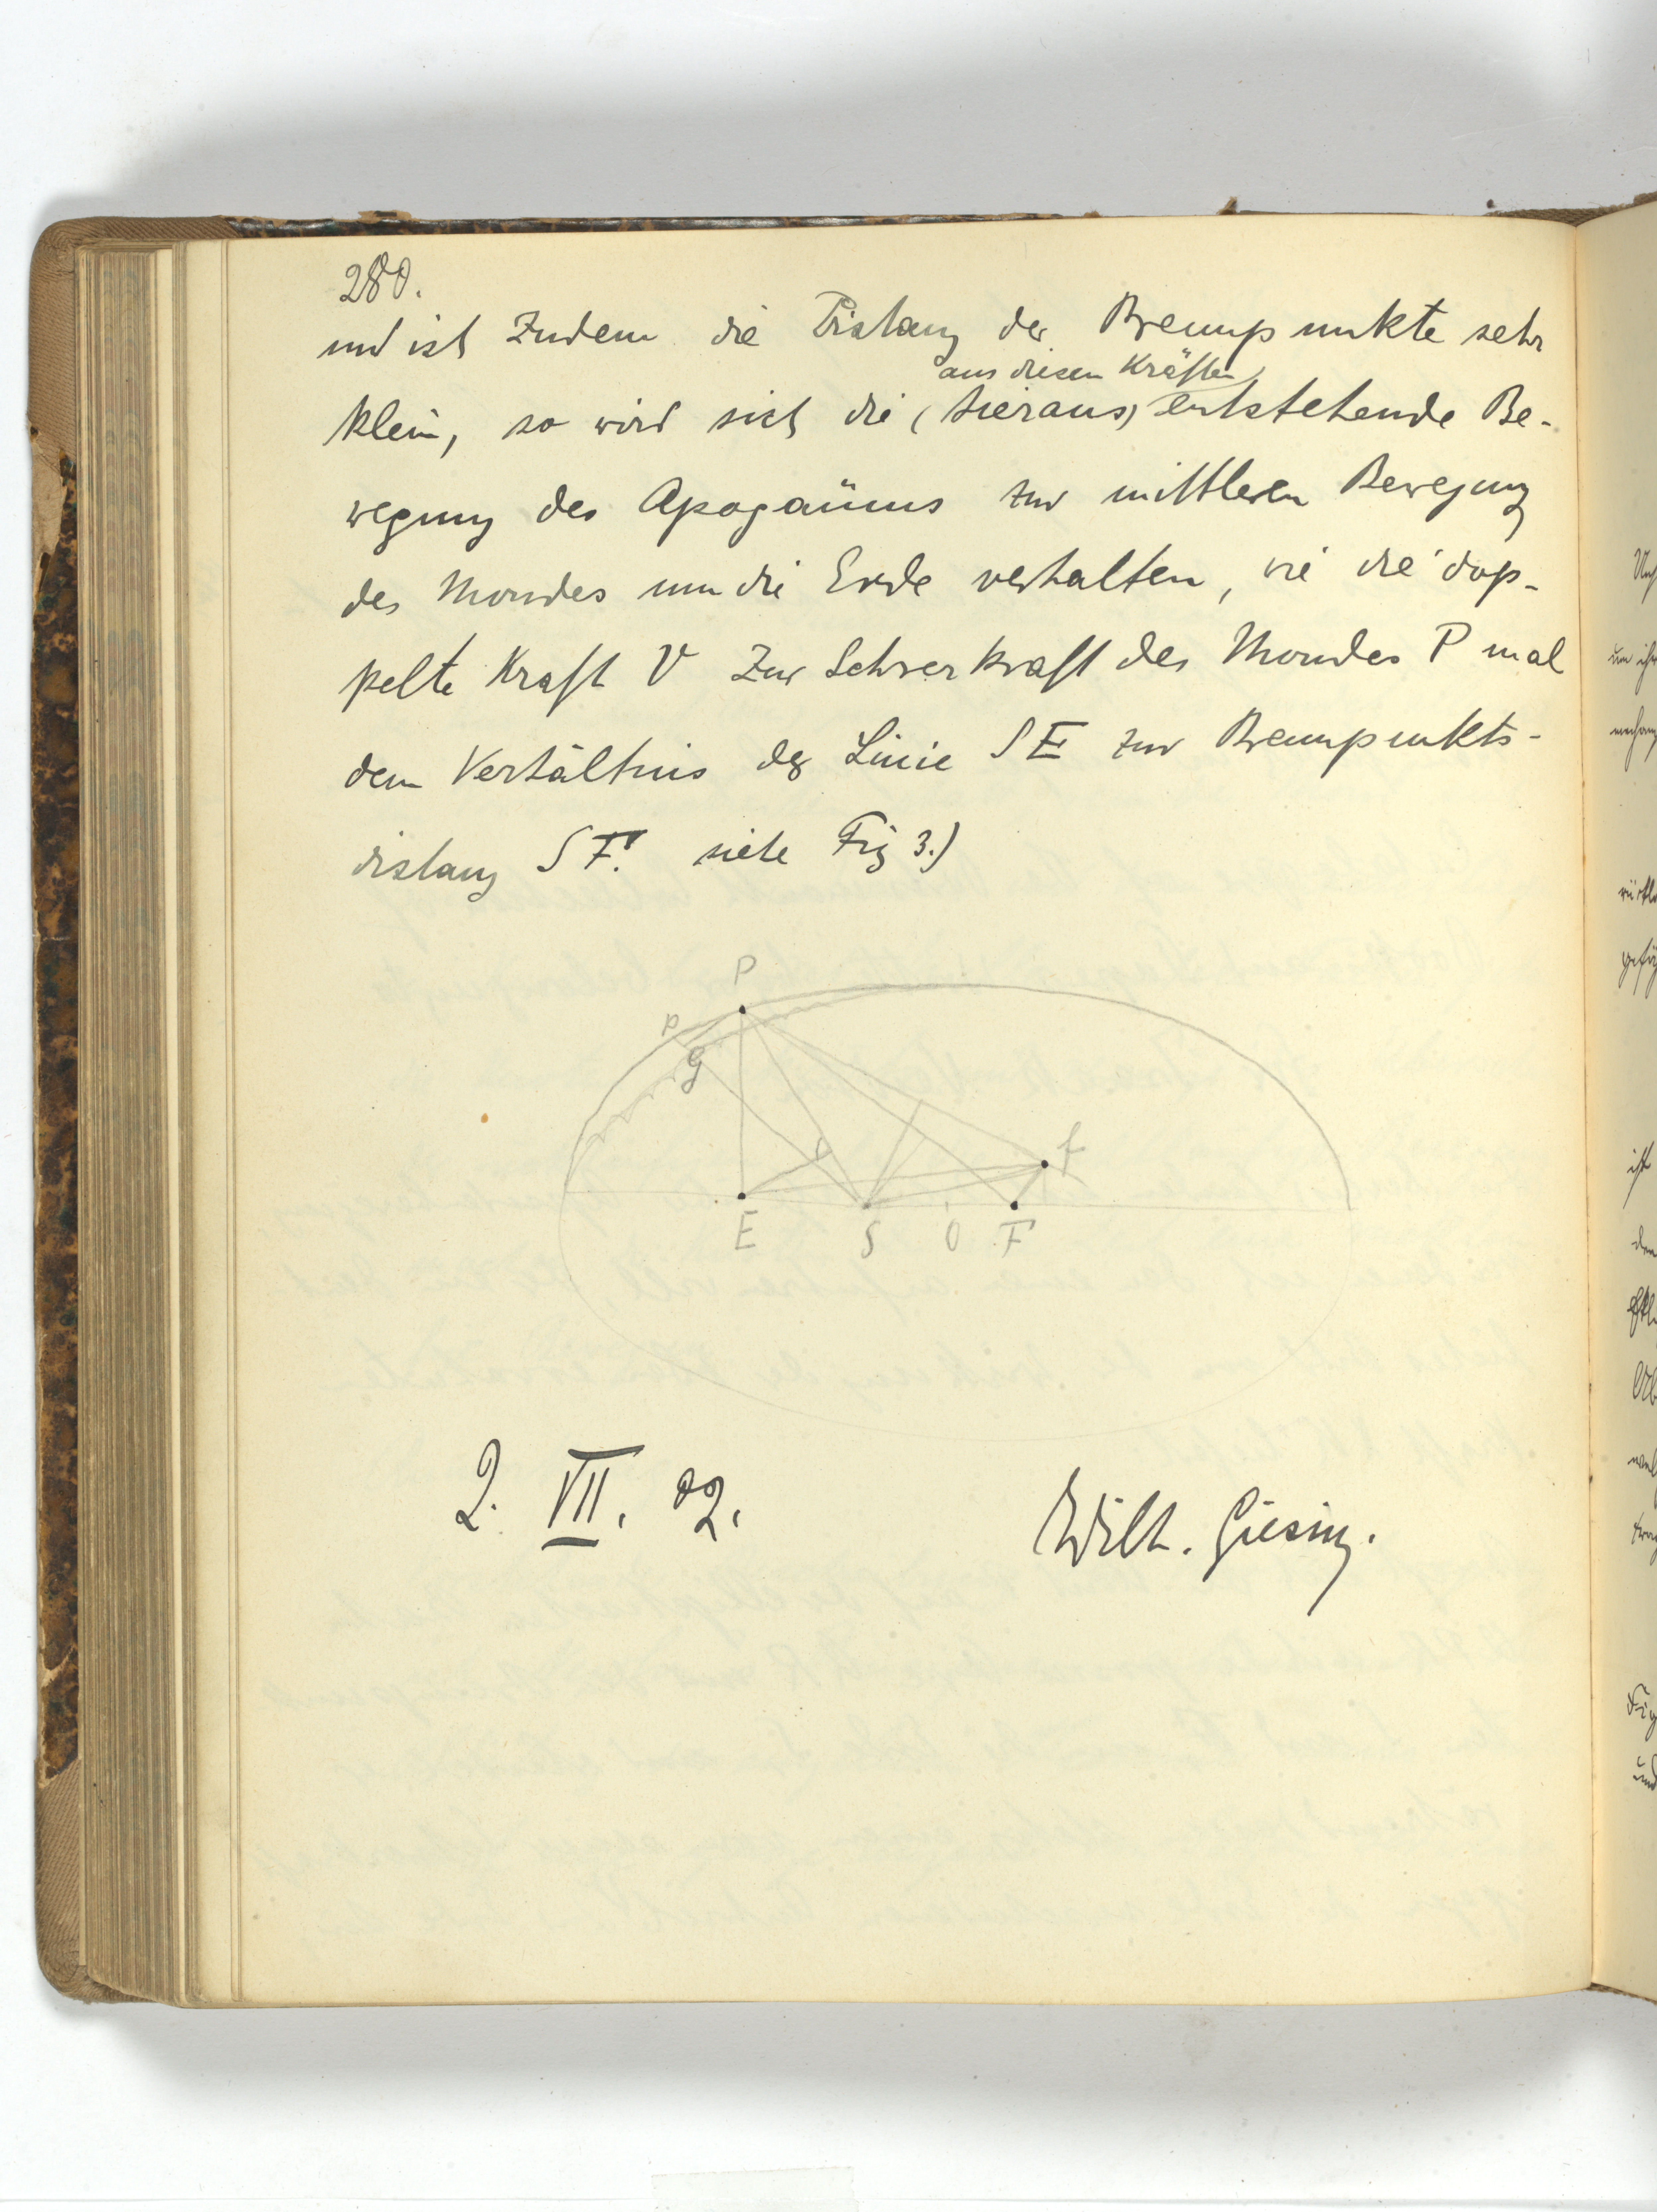 280.
und ist zudem die Distanz der Brennpunkte sehr
aus diesen Kräften
klein, so wird sich die (hieraus) entstehende Be-
wegung des Apogäums zur mittleren Bewegung
des Mondes um die Erde verhalten, wie die dop-
pelte Kraft V zur Schwerkraft des Mondes P mal
dem Verhältnis der Linie SE zur Brennpunkts-
distanz SF. siehe Fig 3.)
P
p
g
f
E S O F
2. VII. 02.
Wilh. Giesing.